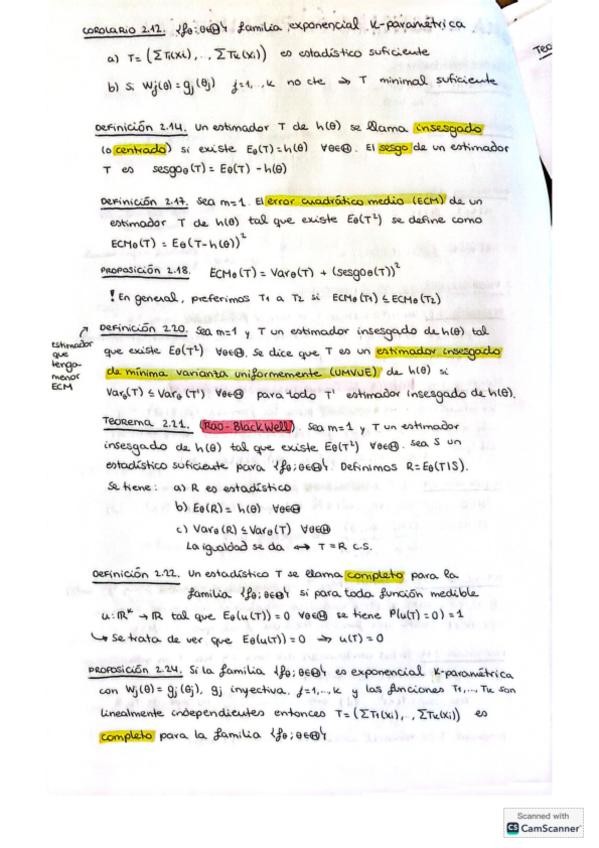 COROLARIO 2.12. {fθ; θ∈Θ} familia exponencial K-paramétrica
a) T = (ΣT1(Xi), .., ΣTk(Xi)) es estadístico suficiente
b) Si Wj(θ) = gj(θj) j=1,..,K no cte ⇒ T minimal suficiente
Teo
Definición 2.14. Un estimador T de h(θ) se llama insesgado
(o centrado) si existe Eθ(T) = h(θ) ∀θ∈Θ. El sesgo de un estimador
T es sesgoθ(T) = Eθ(T) - h(θ)
Definición 2.17. Sea m=1. El error cuadrático medio (ECM) de un
estimador T de h(θ) tal que existe Eθ(T²) se define como
ECMθ(T) = Eθ(T-h(θ))²
Proposición 2.18. ECMθ(T) = Varθ(T) + (sesgoθ(T))²
! En general, preferimos T1 a T2 si ECMθ(T1) ≤ ECMθ(T2)
Definición 2.20. Sea m=1 y T un estimador insesgado de h(θ) tal
que existe Eθ(T²) ∀θ∈Θ. Se dice que T es un estimador insesgado
de mínima varianta uniformemente (UMVUE) de h(θ) si
Varθ(T) ≤ Varθ(T') ∀θ∈Θ para todo T' estimador insesgado de h(θ).
Estimador
que
tenga
menor
ECM
Teorema 2.21. (Rao-Blackwell). Sea m=1 y T un estimador
insesgado de h(θ) tal que existe Eθ(T²) ∀θ∈Θ. Sea S un
estadístico suficiente para {fθ; θ∈Θ}. Definimos R = Eθ(T|S).
Se tiene: a) R es estadístico
b) Eθ(R) = h(θ) ∀θ∈Θ
c) Varθ(R) ≤ Varθ(T) ∀θ∈Θ
La igualdad se da ↔ T=R c.s.
Definición 2.22. Un estadístico T se llama completo para la
familia {fθ; θ∈Θ} si para toda función medible
u: ℝᵏ → ℝ tal que Eθ(u(T)) = 0 ∀θ∈Θ se tiene P(u(T)=0) = 1
↳ Se trata de ver que Eθ(u(T)) = 0 ⇒ u(T) = 0
Proposición 2.24. Si la familia {fθ; θ∈Θ} es exponencial K-paramétrica
con Wj(θ) = gj(θj), gj inyectiva. j=1,..,k y las funciones T1,..,Tk son
linealmente independientes entonces T = (ΣT1(Xi), .., ΣTk(Xi)) es
completo para la familia {fθ; θ∈Θ}
Scanned with
CS CamScanner